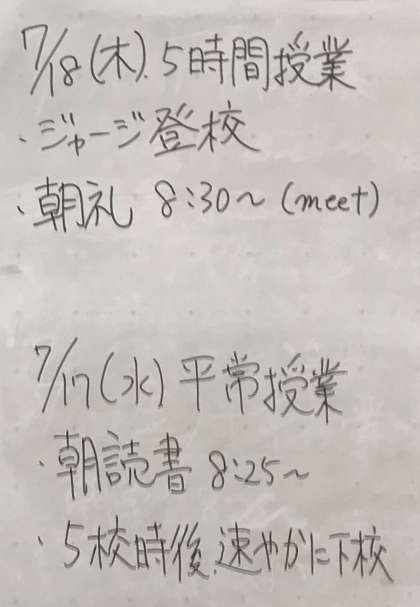 7/18(木). 5時間授業
・ジャージ登校
・朝礼 8:30～(meet)
7/17(水) 平常授業
・朝読書 8:25～
・5校時後、速やかに下校